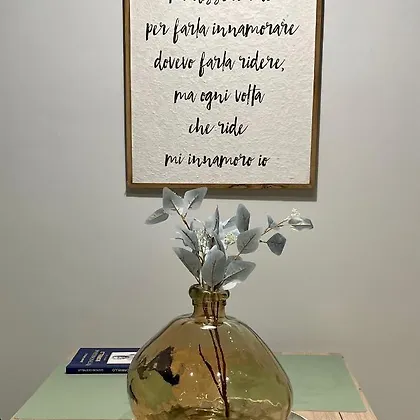 per farla innamorare
dovevo farla ridere,
ma ogni volta
che ride
mi innamoro io